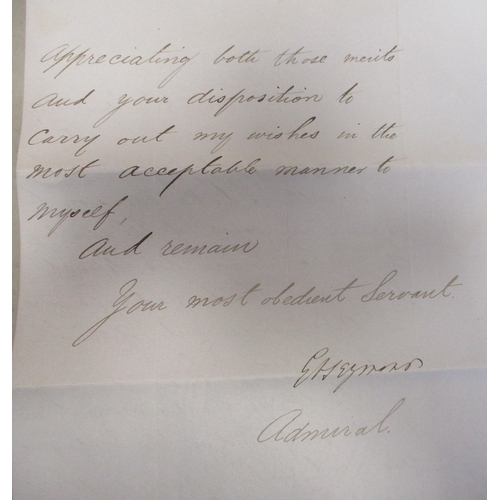 Appreciating both those merits
and your disposition to
carry out my wishes in the
most acceptable manner to
myself,
And remain
Your most obedient Servant.
Admiral.